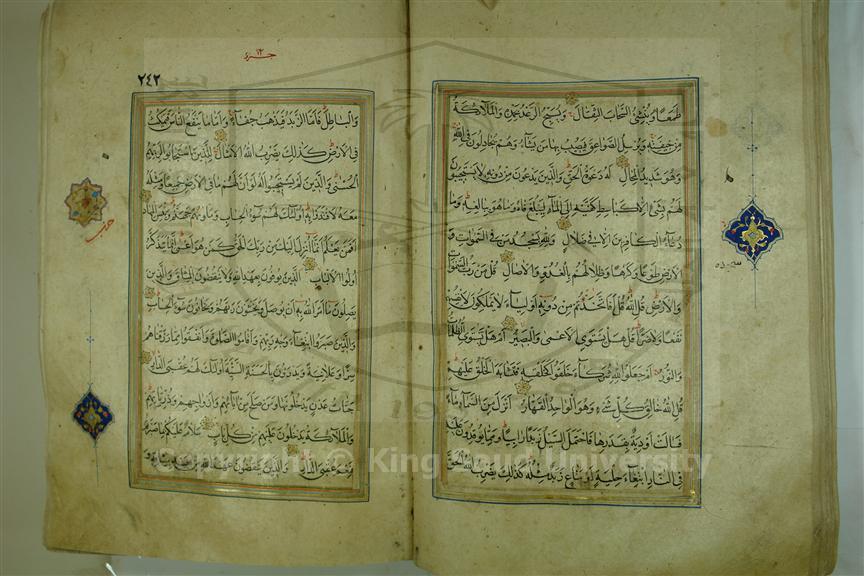 طمعا وينشئ السحاب الثقال ويسبح الرعد بحمده والملائكة
من خيفته ويرسل الصواعق فيصيب بها من يشاء وهم يجادلون في الله
وهو شديد المحال له دعوة الحق والذين يدعون من دونه لا يستجيبون
لهم بشئ الا كباسط كفيه الى الماء ليبلغ فاه وما هو ببالغه وما
دعاء الكافرين الا في ضلال ولله يسجد من في السموات و
الارض طوعا وكرها وظلالهم بالغدو والاصال قل من رب السموات
والارض قل الله قل افاتخذتم من دونه اولياء لا يملكون لانفسهم
نفعا ولا ضرا قل هل يستوى الاعمى والبصير ام هل تستوى الظلمات
والنور ام جعلوا لله شركاء خلقوا كخلقه فتشابه الخلق عليهم
قل الله خالق كل شيء وهو الواحد القهار انزل من السماء ماء
فسالت اودية بقدرها فاحتمل السيل زبدا رابيا ومما يوقدون عليه
في النار ابتغاء حلية او متاع زبد مثله كذلك يضرب الله الحق
جزء ١٣
٢٤٢
والباطل فاما الزبد فيذهب جفاء واما ما ينفع الناس فيمكث
في الارض كذلك يضرب الله الامثال للذين استجابوا لربهم
الحسنى والذين لم يستجيبوا له لو ان لهم ما في الارض جميعا ومثله
معه لافتدوا به اولئك لهم سوء الحساب وماويهم جهنم وبئس المهاد
افمن يعلم انما انزل اليك من ربك الحق كمن هو اعمى انما يتذكر
اولوا الالباب الذين يوفون بعهد الله ولا ينقضون الميثاق والذين
يصلون ما امر الله به ان يوصل ويخشون ربهم ويخافون سوء الحساب
والذين صبروا ابتغاء وجه ربهم واقاموا الصلوة وانفقوا مما رزقناهم
سرا وعلانية ويدرؤن بالحسنة السيئة اولئك لهم عقبى الدار
جنات عدن يدخلونها ومن صلح من ابائهم وازواجهم وذرياتهم
والملائكة يدخلون عليهم من كل باب سلام عليكم بما صبرتم
فنعم عقبى الدار والذين ينقضون عهد الله من بعد ميثاقه و
حزب
Copyright © King Saud University